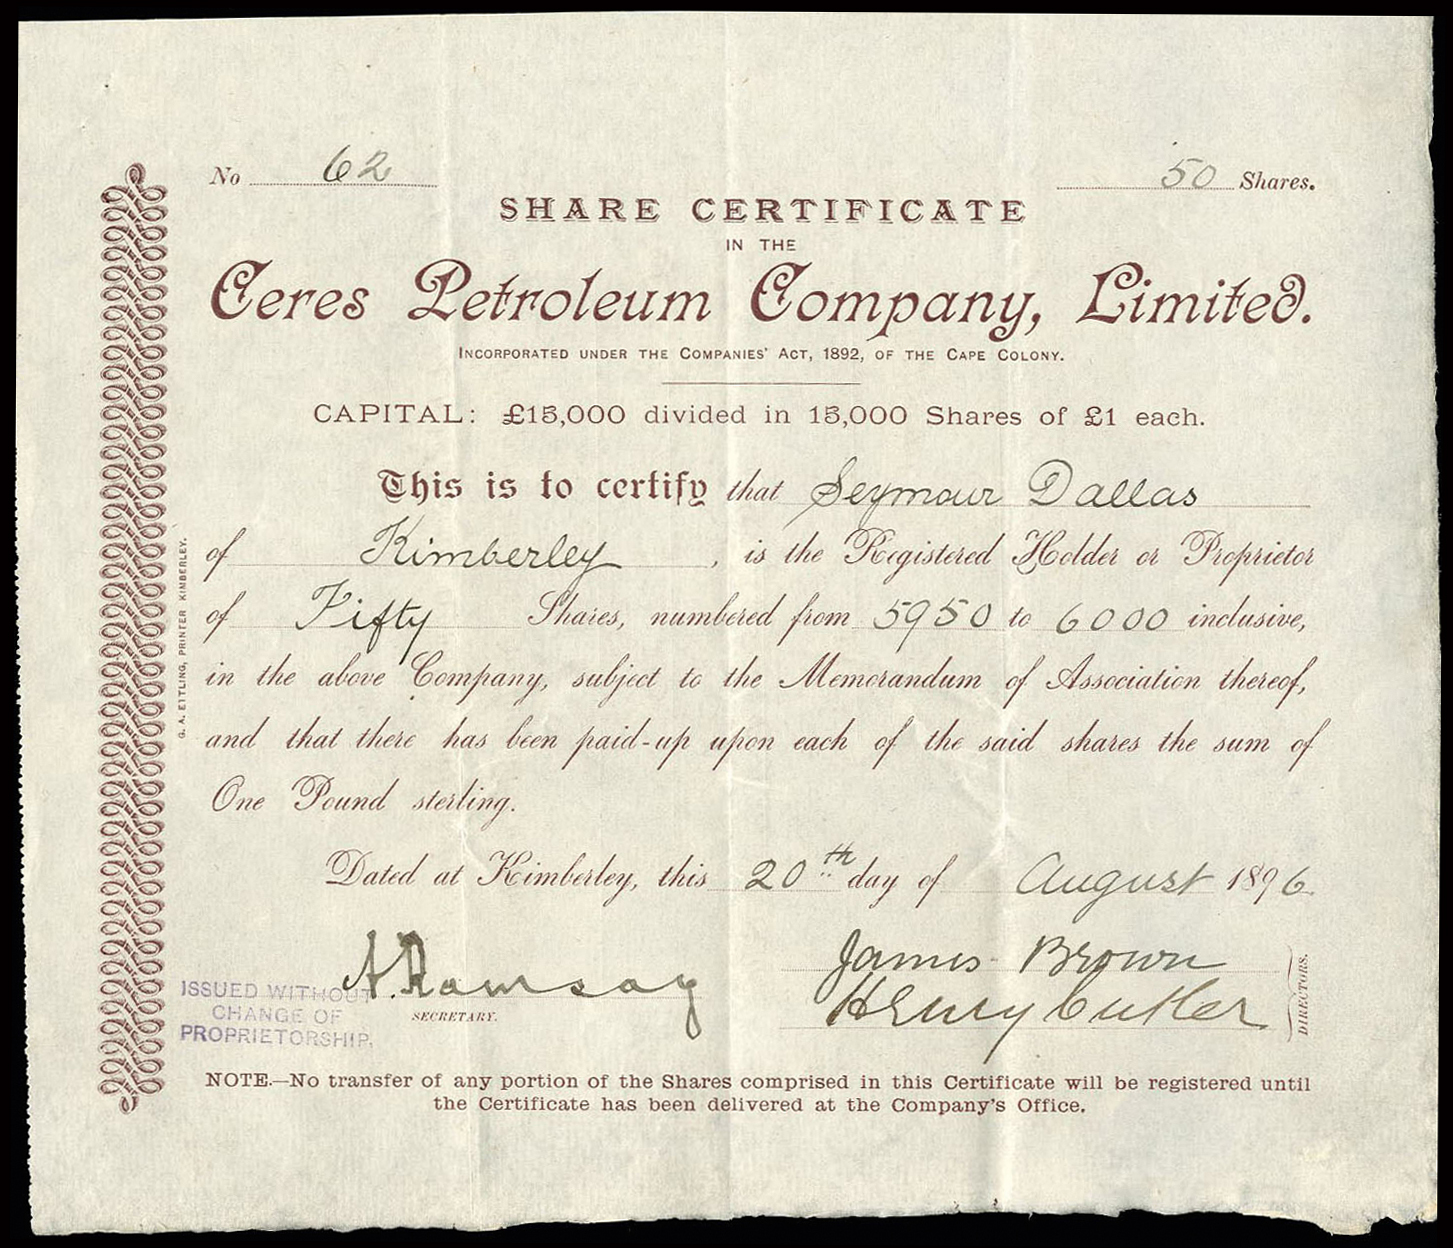 No 62 50 Shares.
SHARE CERTIFICATE
IN THE
Ceres Petroleum Company, Limited.
INCORPORATED UNDER THE COMPANIES' ACT, 1892, OF THE CAPE COLONY.
CAPITAL: £15,000 divided in 15,000 Shares of £1 each.
This is to certify that Seymour Dallas
of Kimberley, is the Registered Holder or Proprietor
of Fifty Shares, numbered from 5950 to 6000 inclusive,
in the above Company, subject to the Memorandum of Association thereof,
and that there has been paid-up upon each of the said shares the sum of
One Pound sterling.
Dated at Kimberley, this 20th day of August 1896.
A. Ramsay
SECRETARY.
James Brown
Henry Cutler
DIRECTORS.
ISSUED WITHOUT
CHANGE OF
PROPRIETORSHIP.
NOTE.—No transfer of any portion of the Shares comprised in this Certificate will be registered until
the Certificate has been delivered at the Company's Office.
G. A. ETTLING, PRINTER KIMBERLEY.